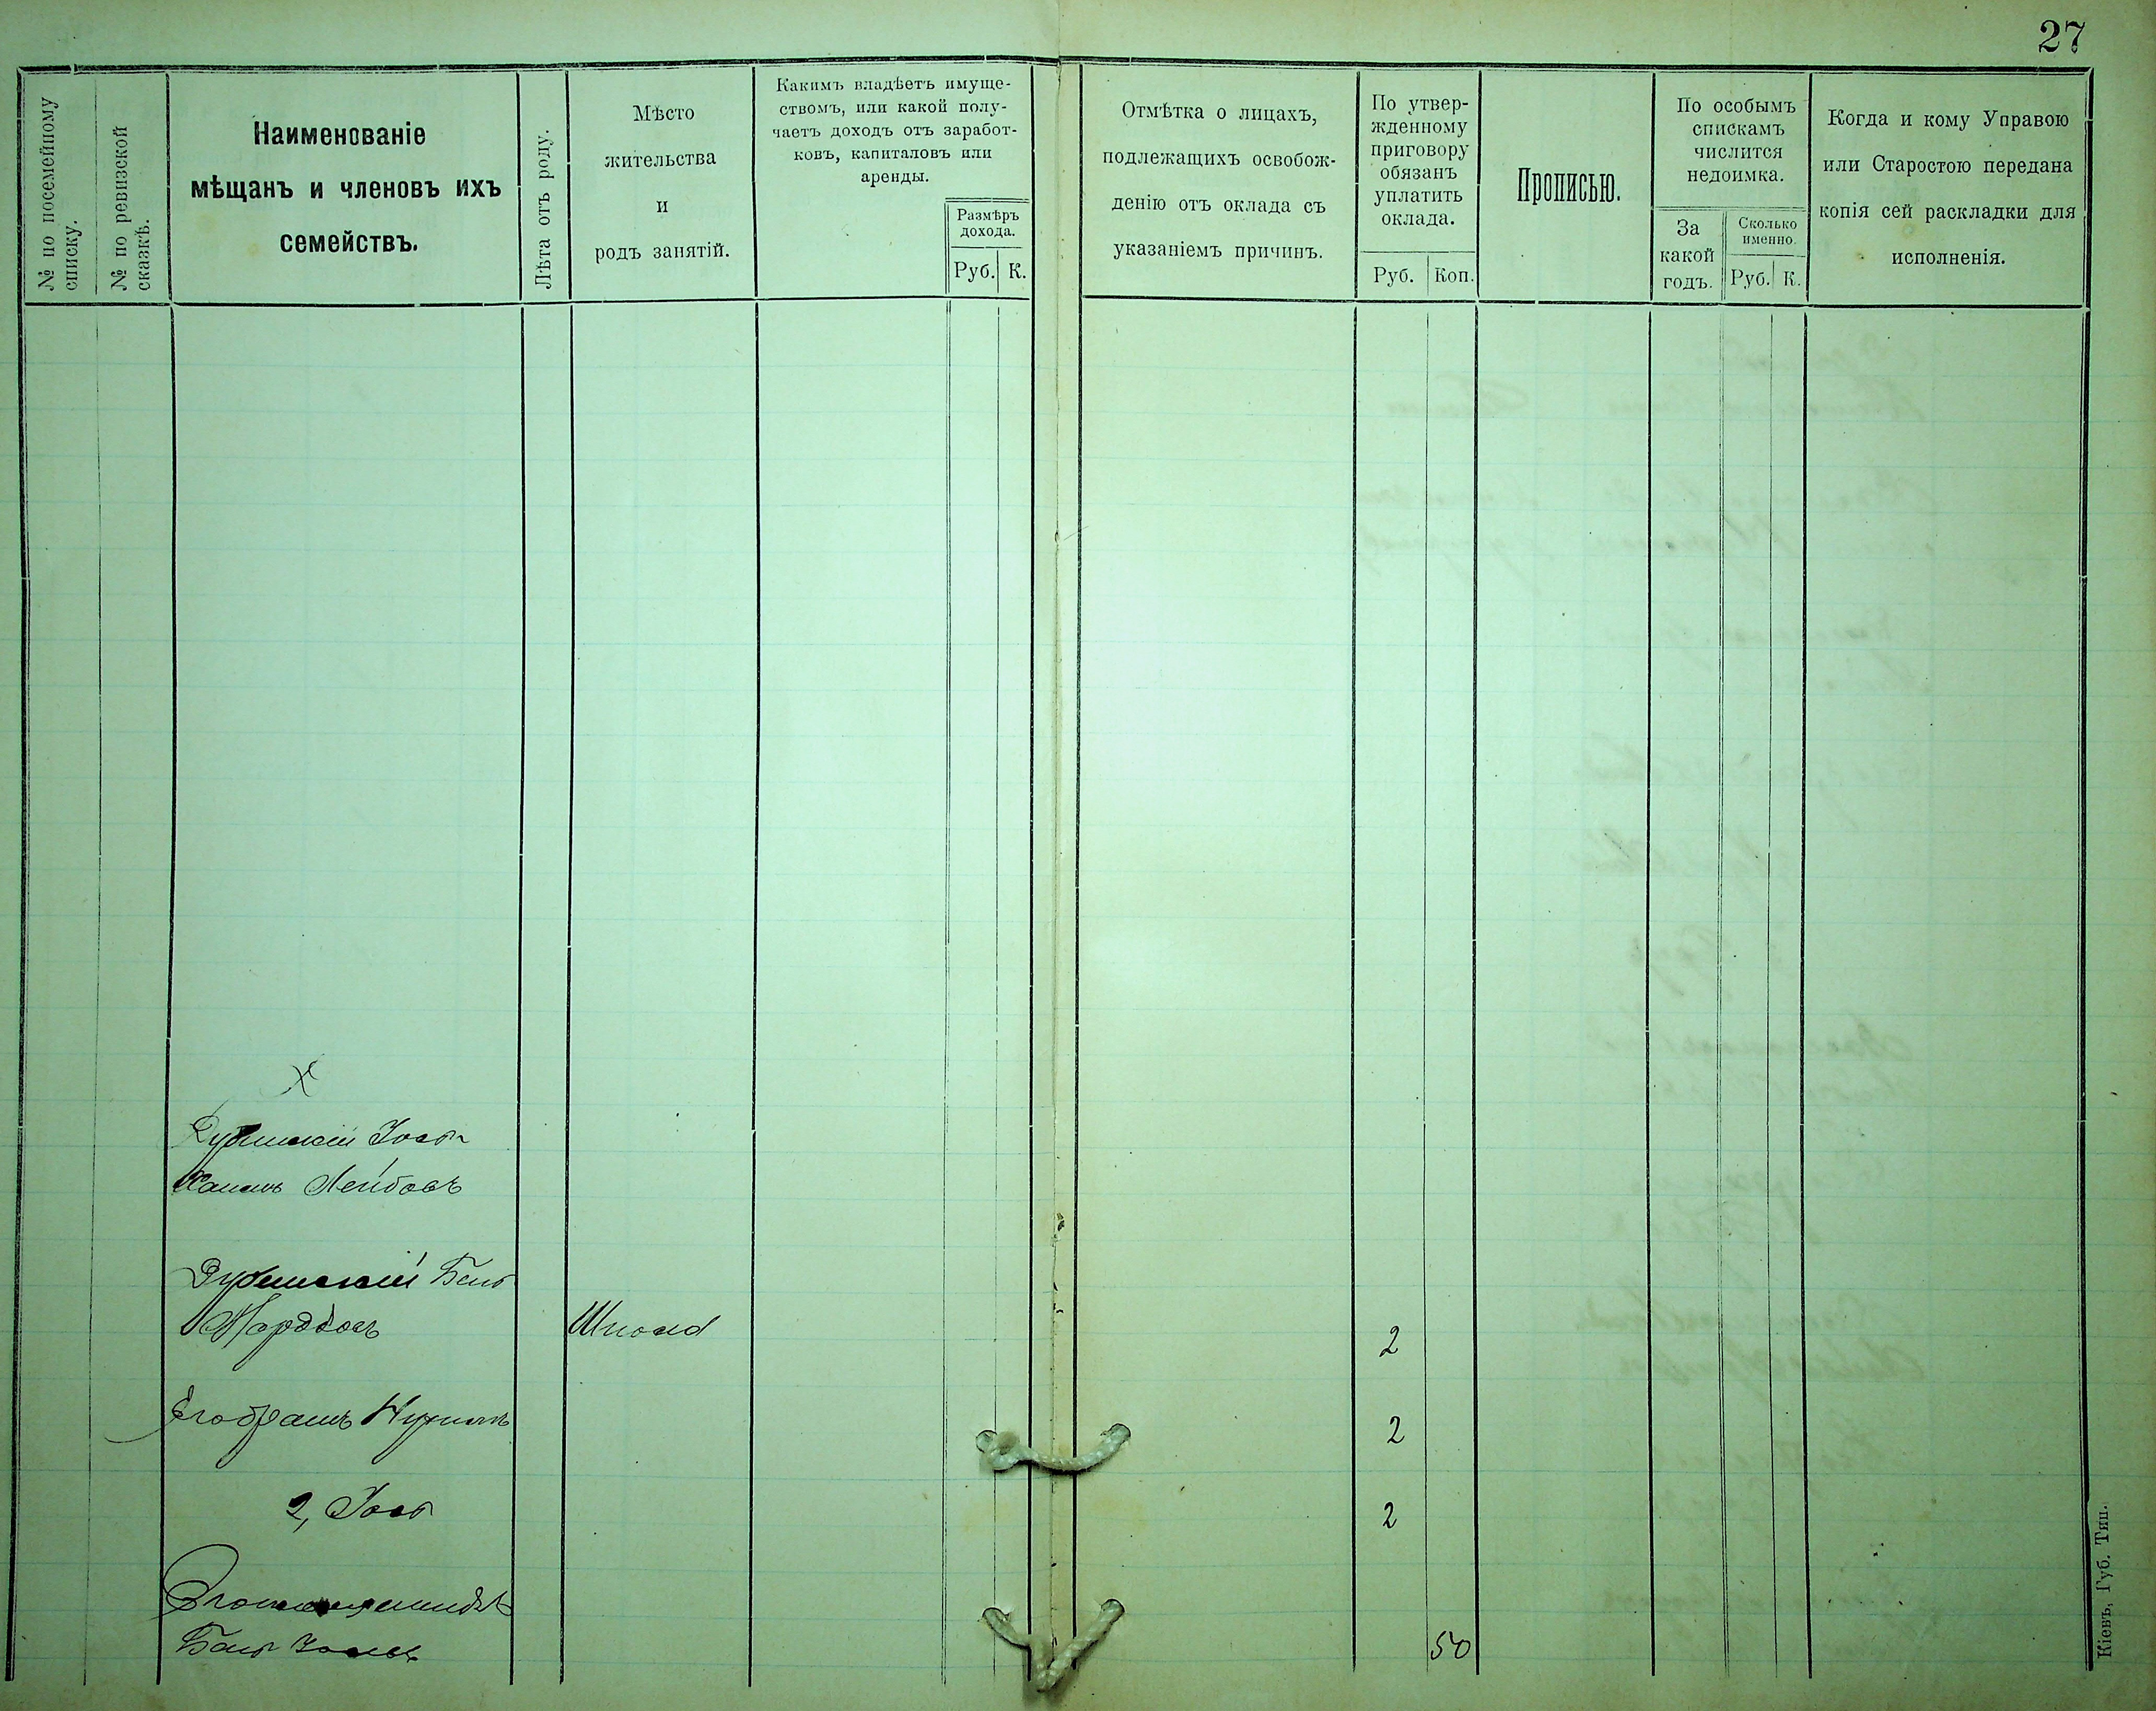 27
№ по посемейному
списку.
№ по ревизской
сказкѣ.
Наименованіе
мѣщанъ и членовъ ихъ
семействъ.
Лѣта отъ роду.
Мѣсто
жительства
и
родъ занятій.
Какимъ владѣетъ имуще-
ствомъ, или какой полу-
чаетъ доходъ отъ заработ-
ковъ, капиталовъ или
аренды.
Размѣръ
дохода.
Руб. К.
Отмѣтка о лицахъ,
подлежащихъ освобож-
денію отъ оклада съ
указаніемъ причинъ.
По утвер-
жденному
приговору
обязанъ
уплатить
оклада.
Руб. Коп.
Прописью.
По особымъ
спискамъ
числится
недоимка.
За
какой
годъ.
Сколько
именно.
Руб. К.
Когда и кому Управою
или Старостою передана
копія сей раскладки для
исполненія.
Х
Лейбовъ
Шпола 2
2
2, 2
50
Кіевъ, Губ. Тип.